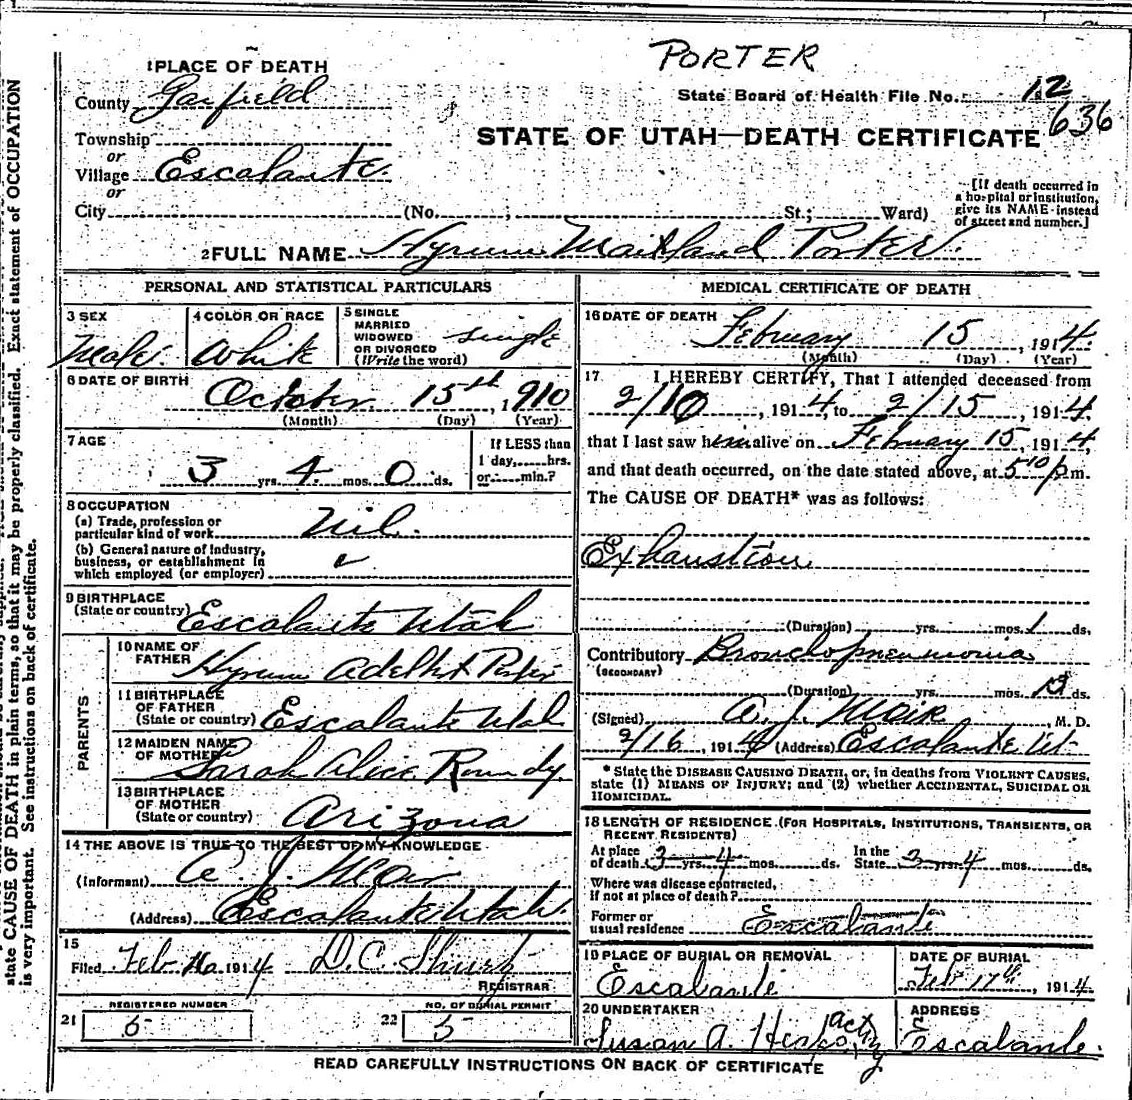 PORTER
1 PLACE OF DEATH
County Garfield
State Board of Health File No. 12
636
Township
or
Village Escalante.
or
City (No. , St.; Ward)
STATE OF UTAH—DEATH CERTIFICATE
[If death occurred in
a hospital or institution,
give its NAME instead
of street and number.]
2 FULL NAME Hyrum Maitland Porter.
PERSONAL AND STATISTICAL PARTICULARS
3 SEX
Male.
4 COLOR OR RACE
White
5 SINGLE
MARRIED
WIDOWED
OR DIVORCED
(Write the word)
single
6 DATE OF BIRTH
October. 15th, 1910
(Month) (Day) (Year)
7 AGE
3 yrs. 4 mos. 0 ds.
If LESS than
1 day,......hrs.
or......min.?
8 OCCUPATION
(a) Trade, profession or
particular kind of work Nil.
(b) General nature of Industry,
business, or establishment in
which employed (or employer)
9 BIRTHPLACE
(State or country) Escalante Utah
PARENTS
10 NAME OF
FATHER Hyrum Adelbert Porter
11 BIRTHPLACE
OF FATHER
(State or country) Escalante Utah
12 MAIDEN NAME
OF MOTHER Sarah Alice Roundy.
13 BIRTHPLACE
OF MOTHER
(State or country) Arizona
14 THE ABOVE IS TRUE TO THE BEST OF MY KNOWLEDGE
(Informant) A. J. Mair
(Address) Escalante Utah.
15
Filed Feb 16 1914 D.C. Shurtz
REGISTRAR
REGISTERED NUMBER
21 5
NO. OF BURIAL PERMIT
22 5
MEDICAL CERTIFICATE OF DEATH
16 DATE OF DEATH
February 15, 1914.
(Month) (Day) (Year)
17 I HEREBY CERTIFY, That I attended deceased from
2/10, 1914 to 2/15, 1914.
that I last saw him alive on February 15, 1914,
and that death occurred, on the date stated above, at 5 10 p m.
The CAUSE OF DEATH* was as follows:
Exhaustion
(Duration) yrs. mos. 1 ds.
Contributory Bronchopneumonia
(SECONDARY)
(Duration) yrs. mos. 13 ds.
(Signed) A. J. Mair, M. D.
2/16, 1914 (Address) Escalante Ut-
* State the DISEASE CAUSING DEATH, or, in deaths from VIOLENT CAUSES,
state (1) MEANS OF INJURY; and (2) whether ACCIDENTAL, SUICIDAL OR
HOMICIDAL.
18 LENGTH OF RESIDENCE (FOR HOSPITALS, INSTITUTIONS, TRANSIENTS, OR
RECENT RESIDENTS)
At place
of death 3 yrs. 4 mos. ds.
In the
State 3 yrs. 4 mos. ds.
Where was disease contracted,
if not at place of death?
Former or
usual residence Escalante
19 PLACE OF BURIAL OR REMOVAL
Escalante
DATE OF BURIAL
Feb 17th, 1914.
20 UNDERTAKER
Susan A. acting
ADDRESS
Escalante.
READ CAREFULLY INSTRUCTIONS ON BACK OF CERTIFICATE
state CAUSE OF DEATH in plain terms, so that it may be properly classified. Exact statement of OCCUPATION
is very important. See instructions on back of certificate.